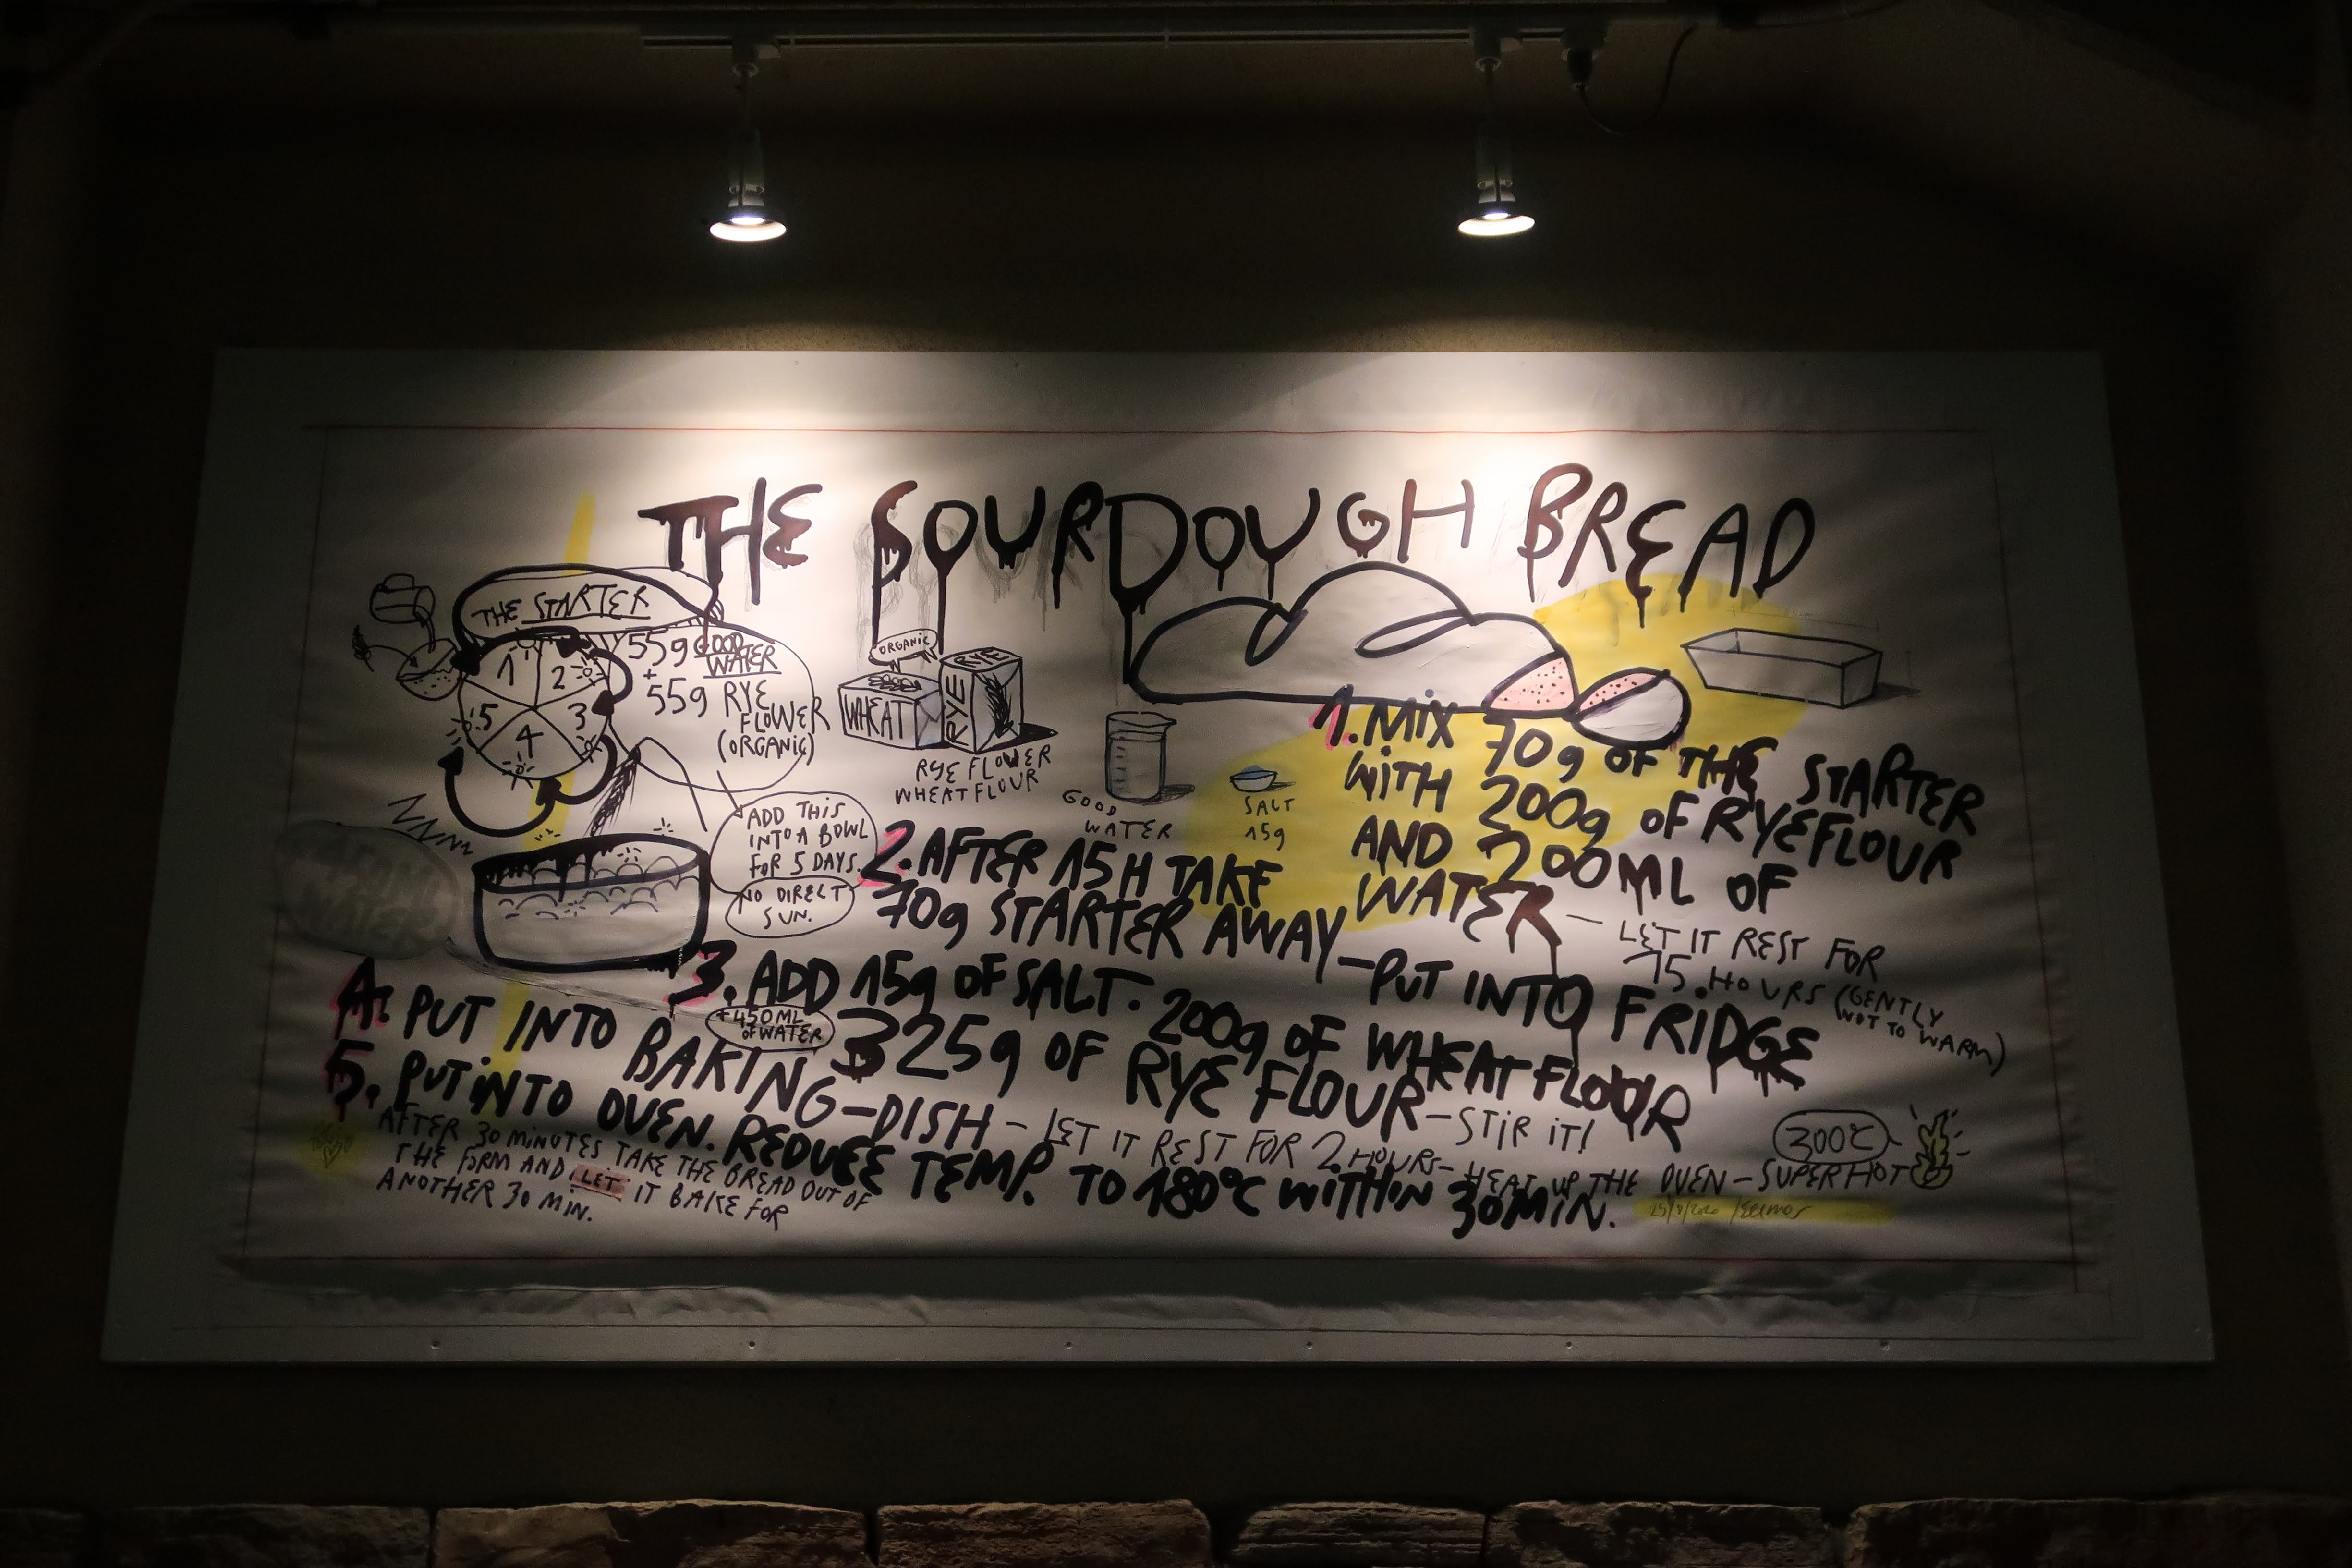 THE SOURDOUGH BREAD
THE STARTER
1
2
3
4
5
55g GOOD
WATER
+
55g RYE
FLOWER
(ORGANIC)
ADD THIS
INTO A BOWL
FOR 5 DAYS.
NO DIRECT
SUN.
ORGANIC
WHEAT
RYE
RYE
RYE FLOWER
WHEAT FLOUR
GOOD
WATER
SALT
15g
450ML
WATER
1. MIX 70g OF THE STARTER
WITH 200g OF RYEFLOUR
AND 200ML OF
WATER - LET IT REST FOR
15 HOURS (GENTLY
NOT TO WARM)
2. AFTER 15H TAKE
70g STARTER AWAY - PUT INTO FRIDGE
3. ADD 15g OF SALT. 200g OF WHEAT FLOUR
+450ML
OF WATER
325g OF RYE FLOUR - STIR IT!
4. PUT INTO BAKING-DISH - LET IT REST FOR 2 HOURS - HEAT UP THE OVEN - SUPERHOT
300°C
5. PUT INTO OVEN. REDUCE TEMP. TO 180°C WITHIN 30MIN.
AFTER 30 MINUTES TAKE THE BREAD OUT OF
THE FORM AND LET IT BAKE FOR
ANOTHER 30 MIN.